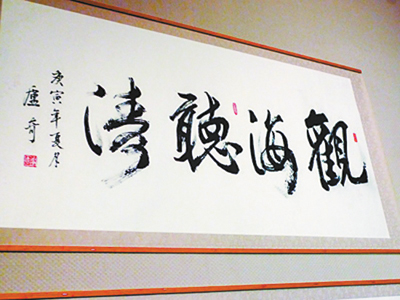 觀海聽濤
庚寅年夏月
盧奇